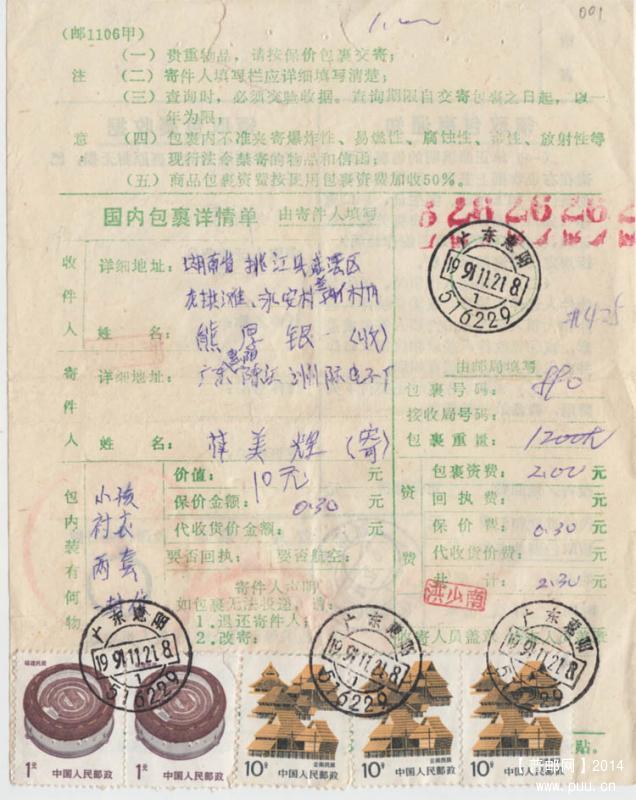 001
(邮1106甲)
注意
(一)贵重物品,请按保价包裹交寄;
(二)寄件人填写栏应详细填写清楚;
(三)查询时,必须交验收据。查询期限自交寄包裹之日起,以一
年为限;
(四)包裹内不准夹寄爆炸性、易燃性、腐蚀性、毒性、放射性等
现行法令禁寄的物品和信函;
(五)商品包裹资费按民用包裹资费加收50%。
国内包裹详情单 由寄件人填写
28 26 26 26 2
广东惠阳
1991.11.21.8
1
516229
收件人
详细地址: 湖南省桃江县
永安村
姓名: 熊厚银(收)
寄件人
详细地址: 广东惠阳陈江
姓名: 薛美辉(寄)
由邮局填写
包裹号码: 890
接收局号码:
包裹重量: 1200
包内装有何物
小孩
衬衣
两套
价值: 10元 元
保价金额: 0.30 元
代收货价金额: 元
要否回执: 要否航空:
寄件人声明
如包裹无法投递,请:
1.退还寄件人:
2.改寄:
资费
包裹资费: 2.00 元
回执费: 元
保价费: 0.30 元
代收货价费: 元
共计: 2.30 元
洪少南
广东惠阳
1991.11.21.8
1
516229
广东惠阳
1991.11.21.8
1
516229
广东惠阳
1991.11.21.8
福建民居
1元 中国人民邮政
1元 中国人民邮政
云南民居
10分 中国人民邮政
云南民居
10分 中国人民邮政
云南民居
10分 中国人民邮政
贴。
2014
www.puu.cn